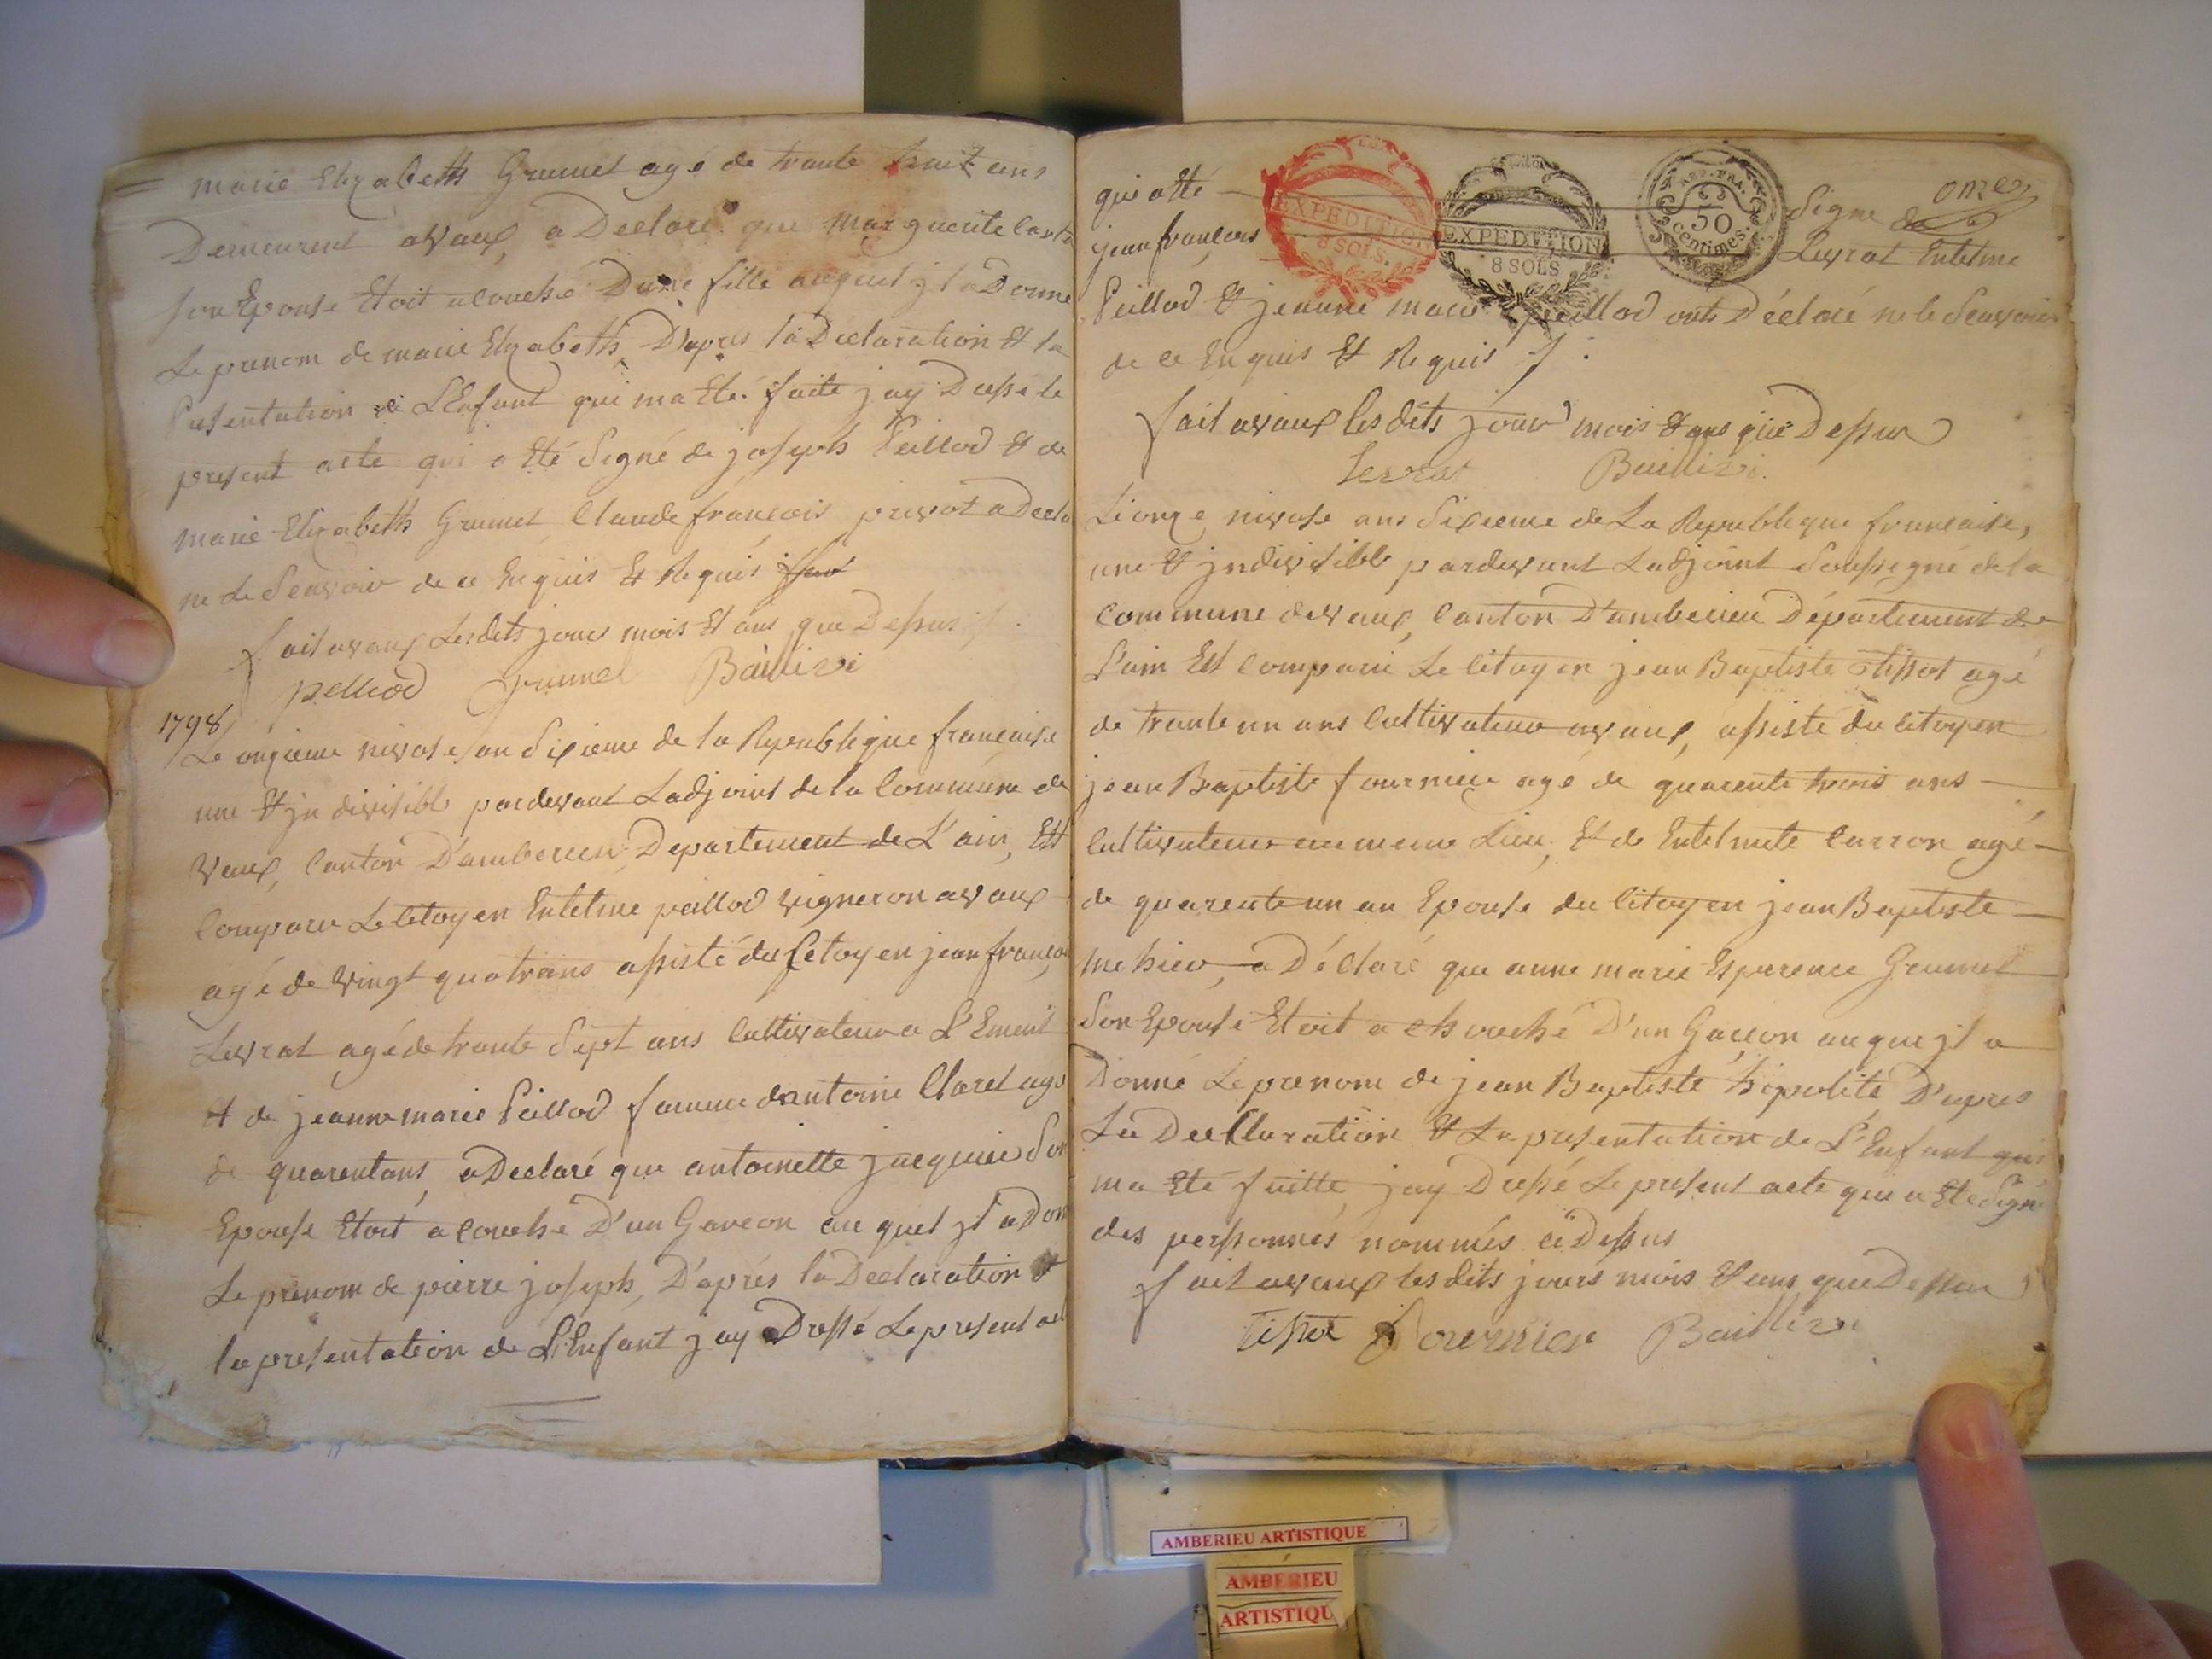 marie Elizabeth Grumet agé de trante huit ans
Demeurent avaux, a Declaré que marguerite
son Epouse Etoit acouché Dune fille auquel jl a Donné
Le prenom de marie Elizabeth D'apres la Declaration & la
Presentation de L'Enfant qui ma Eté faite jay Dressé le
present acte qui a Eté Signé de joseph Peillod & de
marie Elizabeth Grumet, Claude françois prevot a Decla
ne Le Scavoir de ce Enquis Et Requis
fait avaux Lesdits jour mois Et ans que Dessus
pelliod Grumel Baillivi
1798
Le onzieme nivose an Sixieme de la Republique francaise
une & jndivisible pardevant Ladjoint de la Commune de
Vaux, Canton D'amberieu Departement de L'ain, Est
Comparu Le Citoyen Entelme peillod vigneron avaux
agé de vingt quatrans assisté du Citoyen jean françois
Levrat agé de trante Sept ans Cultivateur a L'Ement
& de jeanne marie Peillod famme dantoine Claret agé
de quarentans, a Declaré que antoinette jacquier Son
Epouse Etoit acouché D'un Garcon au quel jl a Don
Le prenom de pierre joseph, D'aprés la Declaration &
la presentation de L'Enfant jay Dressé Le present act
qui a Eté
EXPEDITION
8 SOLS.
EXPEDITION
8 SOLS
REP. FRA.
50
centimes.
Signe de
onze
jean françois
Levrat Entelme
Peillod & jeanne marie peillod ont Déclaré ne le Scavoir
de ce Enquis & Requis
fait avaux les dits jour mois & ans que Dessus
Levrat Baillivi.
Le onze nivose ans Sixieme de La Republique francaise,
une & jndivisible pardevant Ladjoint Soussigné de la
Commune de vaux, Canton D'amberieu Département de
L'ain Est Comparu Le Citoyen jean Baptiste tissot agé
de trante un ans Cultivateur avaux, assisté du Citoyen
jean Baptiste fournier agé de quarente trois ans
Cultivateur au meme Lieu, & de Entelmete Carron agé
de quarente un an Epouse du Citoyen jean Baptiste
, a Déclaré que anne marie Esperence Grumet
Son Epouse Etoit a chouché D'un Garcon auquel jl a
Donné Le prenom de jean Baptiste hipolite D'apres
La Decllaration & La presentation de L'Enfant qui
ma Eté faitte, jay Dressé Le present acte qui a Eté Signé
des perssonnes nommés ci Dessus
fait avaux les dits jours mois & ans que Dessus
tissot Fournier Baillivi
AMBERIEU ARTISTIQUE
AMBÉRIEU
ARTISTIQU